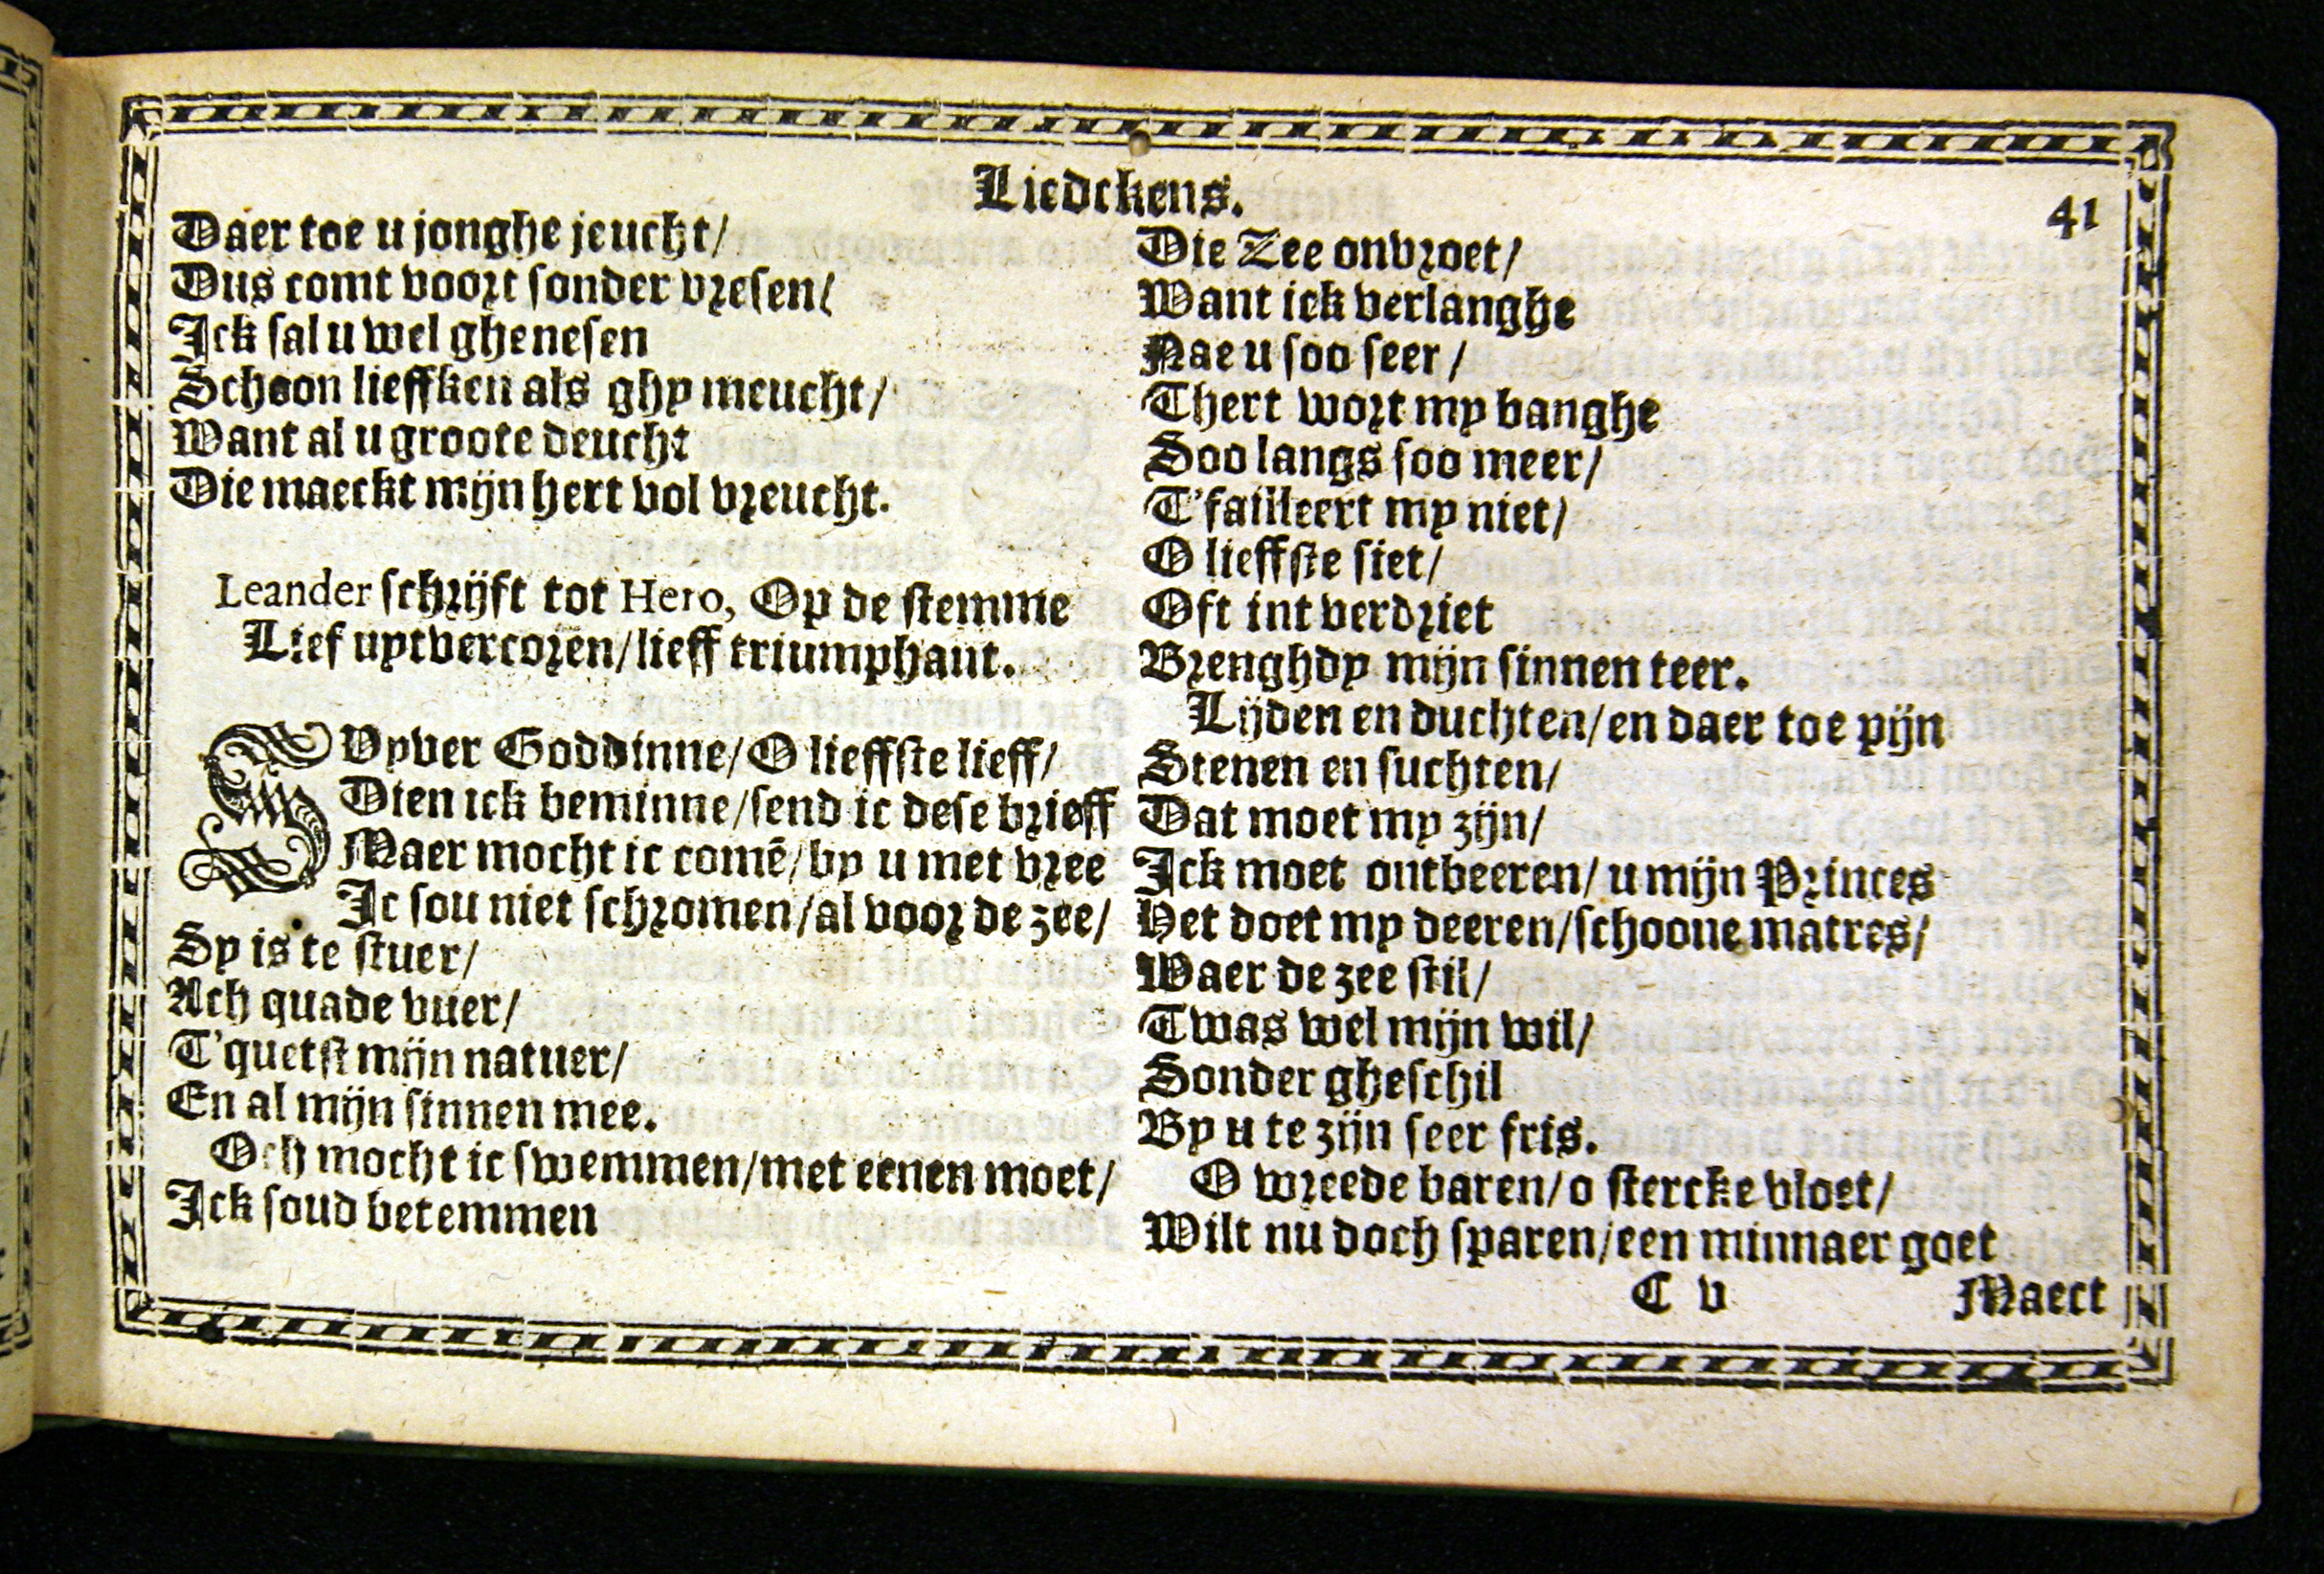 Liedekens.
41
Daer toe u jonghe jeucht/
Dus comt voort sonder vresen/
Ick sal u wel ghenesen
Schoon lieffken als ghy meucht/
Want al u groote deucht
Die maeckt mijn hert vol vreucht.
Leander schrijft tot Hero, Op de stemme
Lief uytvercoren/lieff triumphant.
SUyver Goddinne/O lieffste lieff/
Dien ick beminne/send ic dese brieff
Maer mocht ic comē/by u met vree
Ic sou niet schromen/al voor de zee/
Sy is te stuer/
Ach quade vuer/
T'quetst mijn natuer/
En al mijn sinnen mee.
Och mocht ic swemmen/met eenen moet/
Ick soud betemmen
Die Zee onvroet/
Want ick verlanghe
Nae u soo seer/
Thert wort my banghe
Soo langs soo meer/
T'failleert my niet/
O lieffste siet/
Oft int verdriet
Brenghdy mijn sinnen teer.
Lijden en duchten/en daer toe pijn
Stenen en suchten/
Dat moet my zijn/
Ick moet ontbeeren/u mijn Princes
Het doet my deeren/schoone matres/
Waer de zee stil/
Twas wel mijn wil/
Sonder gheschil
By u te zijn seer fris.
O wreede baren/o stercke vloet/
Wilt nu doch sparen/een minnaer goet
C v
Maect